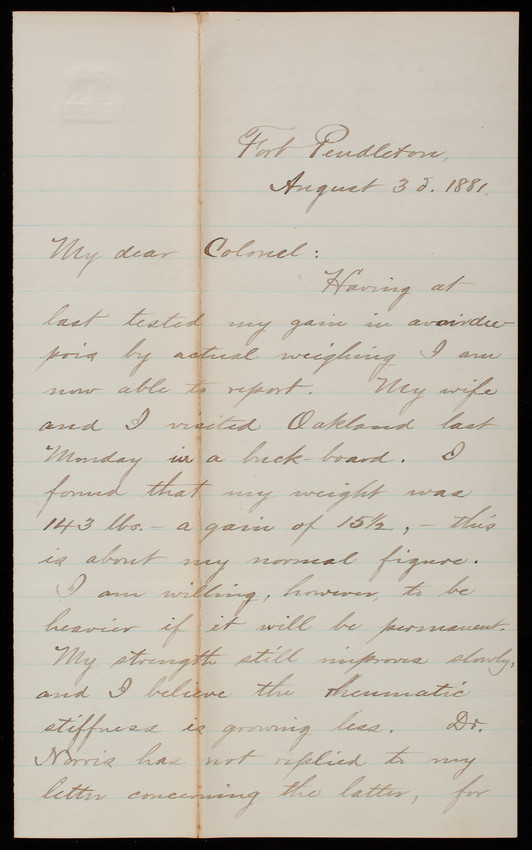 Fort Pendleton,
August 3d. 1881.
My dear Colonel:
Having at
last tested my gain in avoirdu-
pois by actual weighing I am
now able to report. My wife
and I visited Oakland last
Monday in a buck-board. I
found that my weight was
143 lbs. - a gain of 15½, - this
is about my normal figure.
I am willing, however, to be
heavier if it will be permanent.
My strength still improves slowly,
and I believe the rheumatic
stiffness is growing less. Dr.
Norris has not replied to my
letter concerning the latter, for